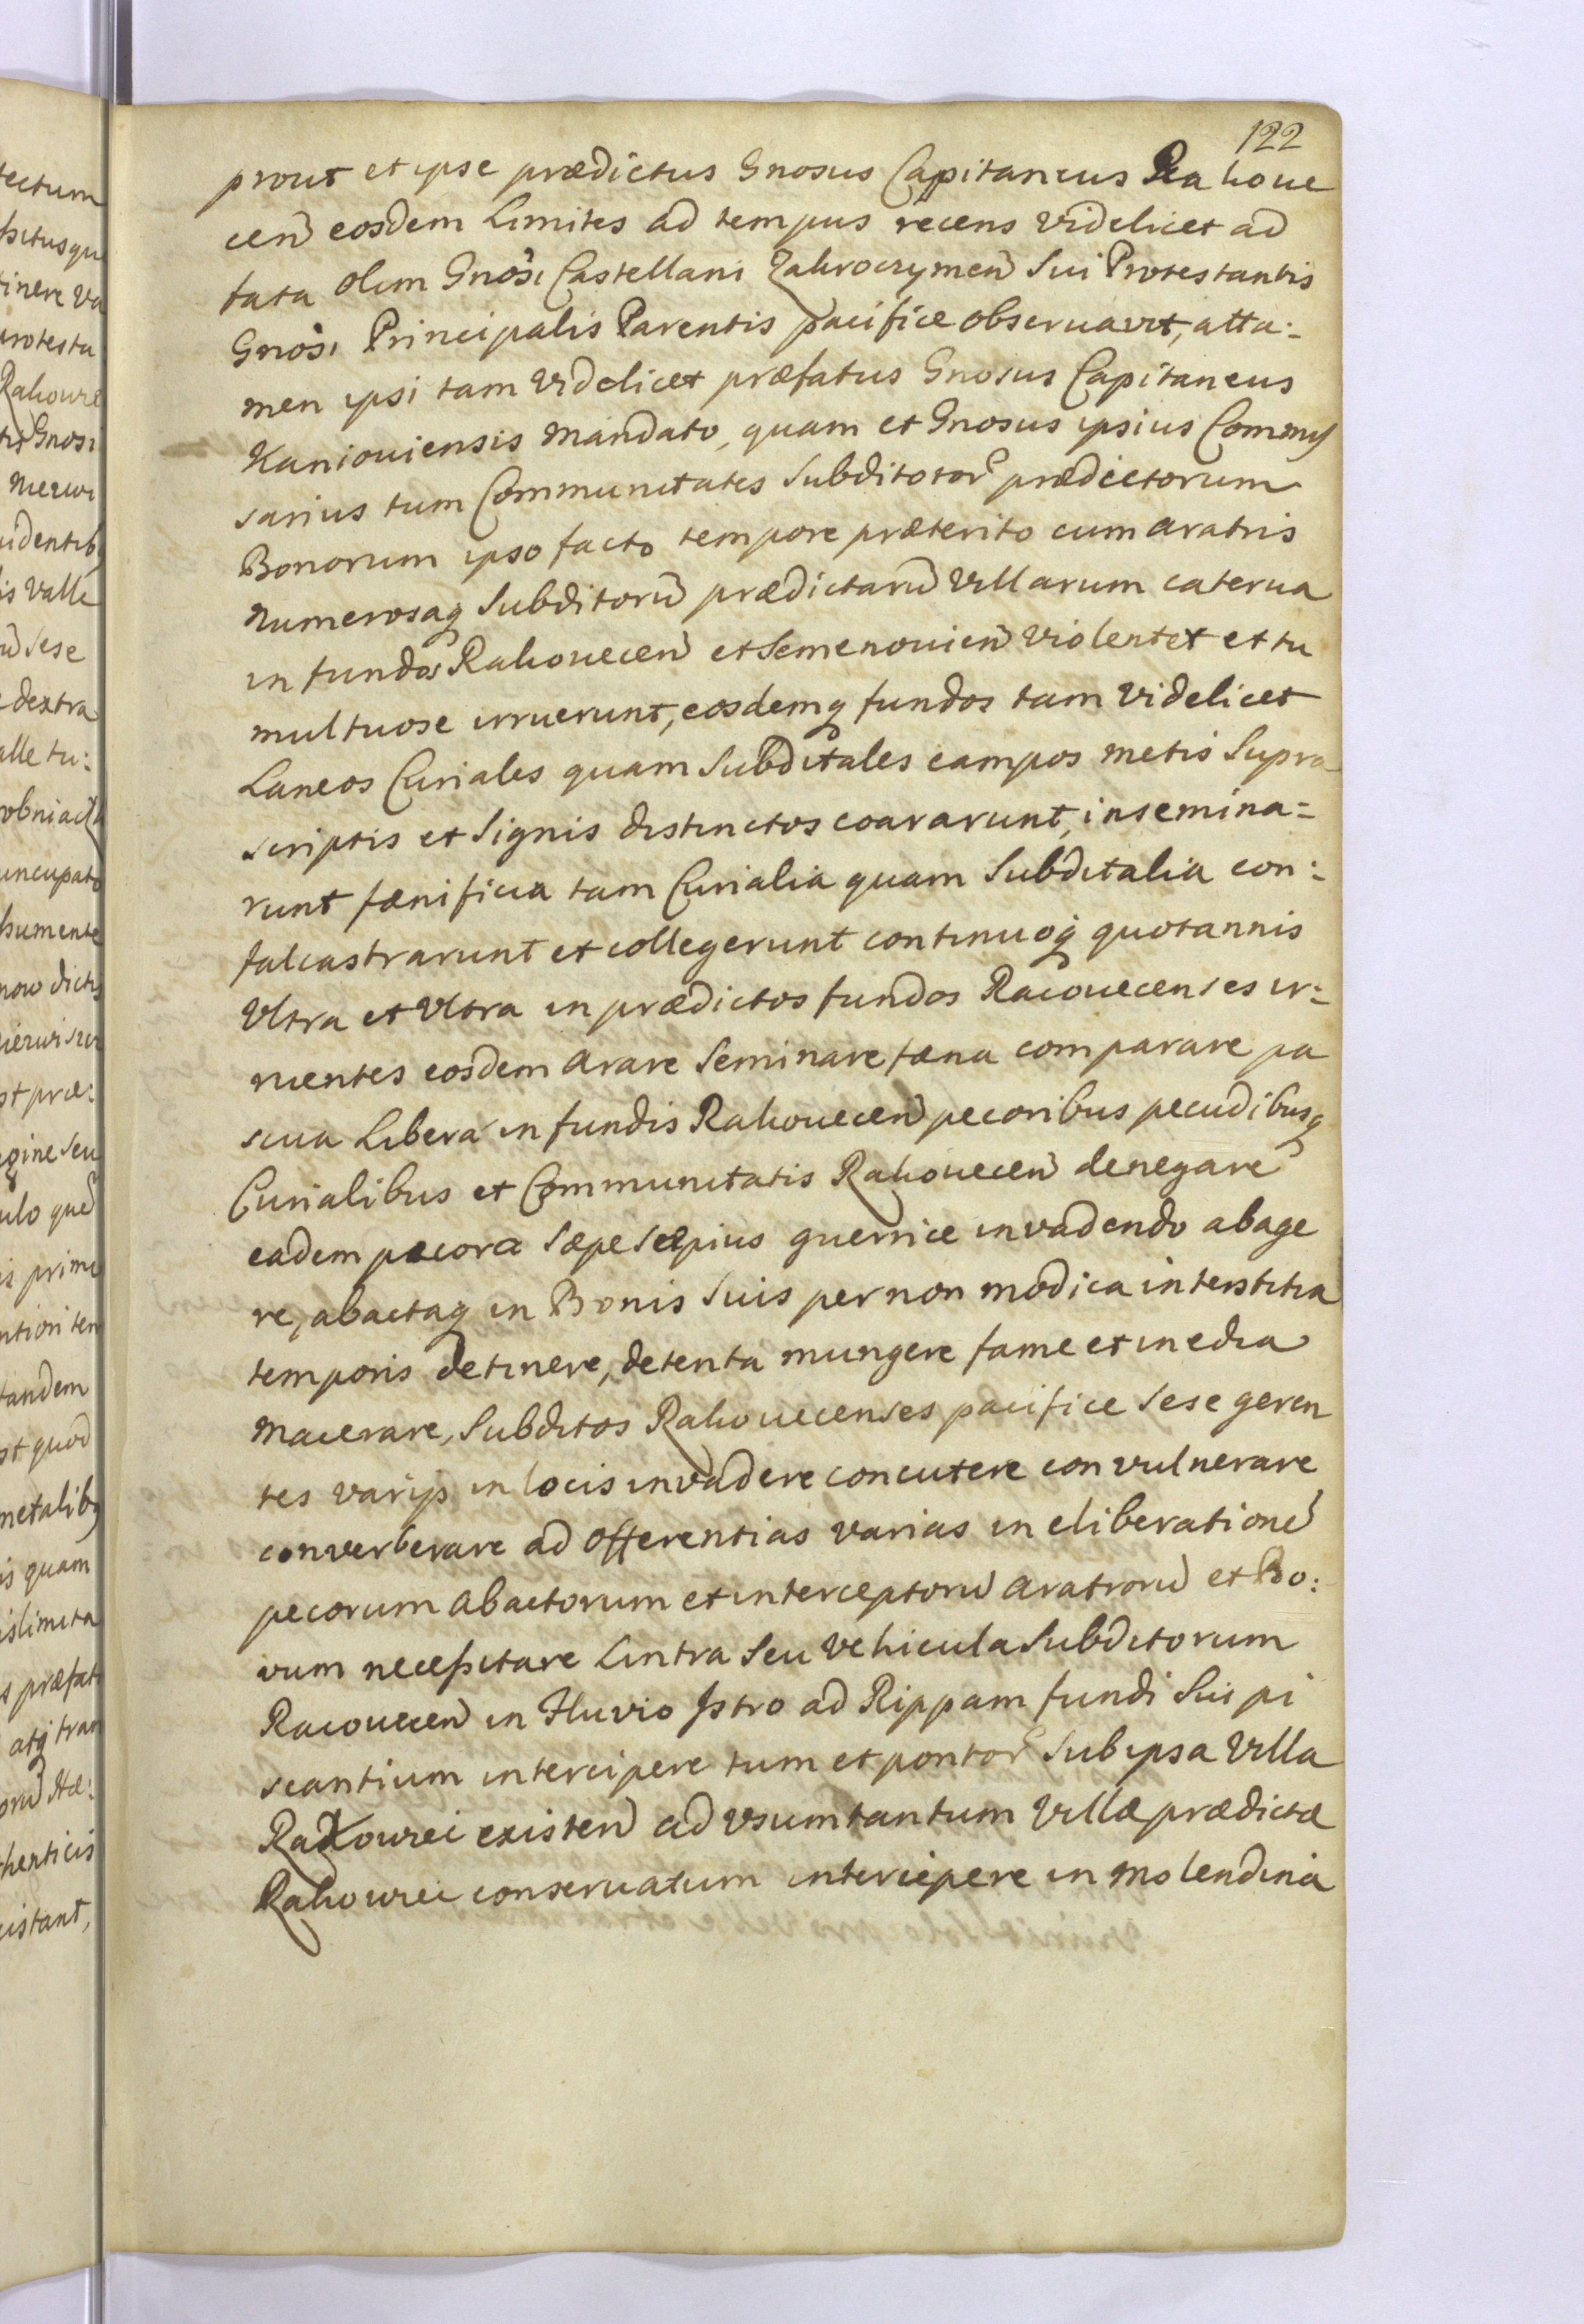 122
prout et ipse prædictus Gnosus Capitaneus Rahoue
cen̄ eosdem Limites ad tempus recens videlicet ad
fata olim Gnosi Castellani Zakroczymen̄ Sui Protestantis
Gnosi Principalis Parentis pacifice obseruavit, atta:
men ipsi tam videlicet præfatus Gnosus Capitaneus
Kaniouiensis mandato, quam et Gnosus ipsius Commis
sarius tum Communitates Subditotor̄ prædictorum
Bonorum ipso facto tempore præterito cum aratris
numerosaq̨ Subditorū prædictarū Villarum caterua
in fundos Rahouecen̄ et Semenouien̄ violentet et tu
multuose irruerunt, eosdemq̨ fundos tam videlicet
Laneos Curiales quam Subditales campos metis Supra
scriptis et Signis distinctos coararunt, insemina=
runt fænificia tam Curialia quam Subditalia con:
falcastrarunt et collegerunt continuoq̨ quotannis
Vltra et Vltra in prædictos fundos Racouecenses ir:
ruentes eosdem arare Seminare fæna comparare pa
scua Libera in fundis Rahouecen̄ pecoribus pecudibusq̨
Curialibus et Communitatis Rahouecen̄ denegare
eadem pecora sæpe sæpius guerrice invadendo abage
re, abactaq̨ in Bonis Suis per non modica interstitia
temporis detinere, detenta mungere fame et inedia
macerare, Subditos Rahouecenses pacifice Sese geren
tes varijs in locis invadere concutere convulnerare
converberare ad offerentias varias in eliberationē
pecorum abactorum et interceptorū aratrorū et Bo:
vum necessitare Lintra Seu Vehicula Subditorum
Racouecen̄ in Fluvio Istro ad Rippam fundi Sui pi
scantium intercipere tum et pontor̄ Sub ipsa Villa
Rakowiei existen̄ ad vsum tantum Villæ prædictæ
Rahowiei conseruatum intercipere in molendina